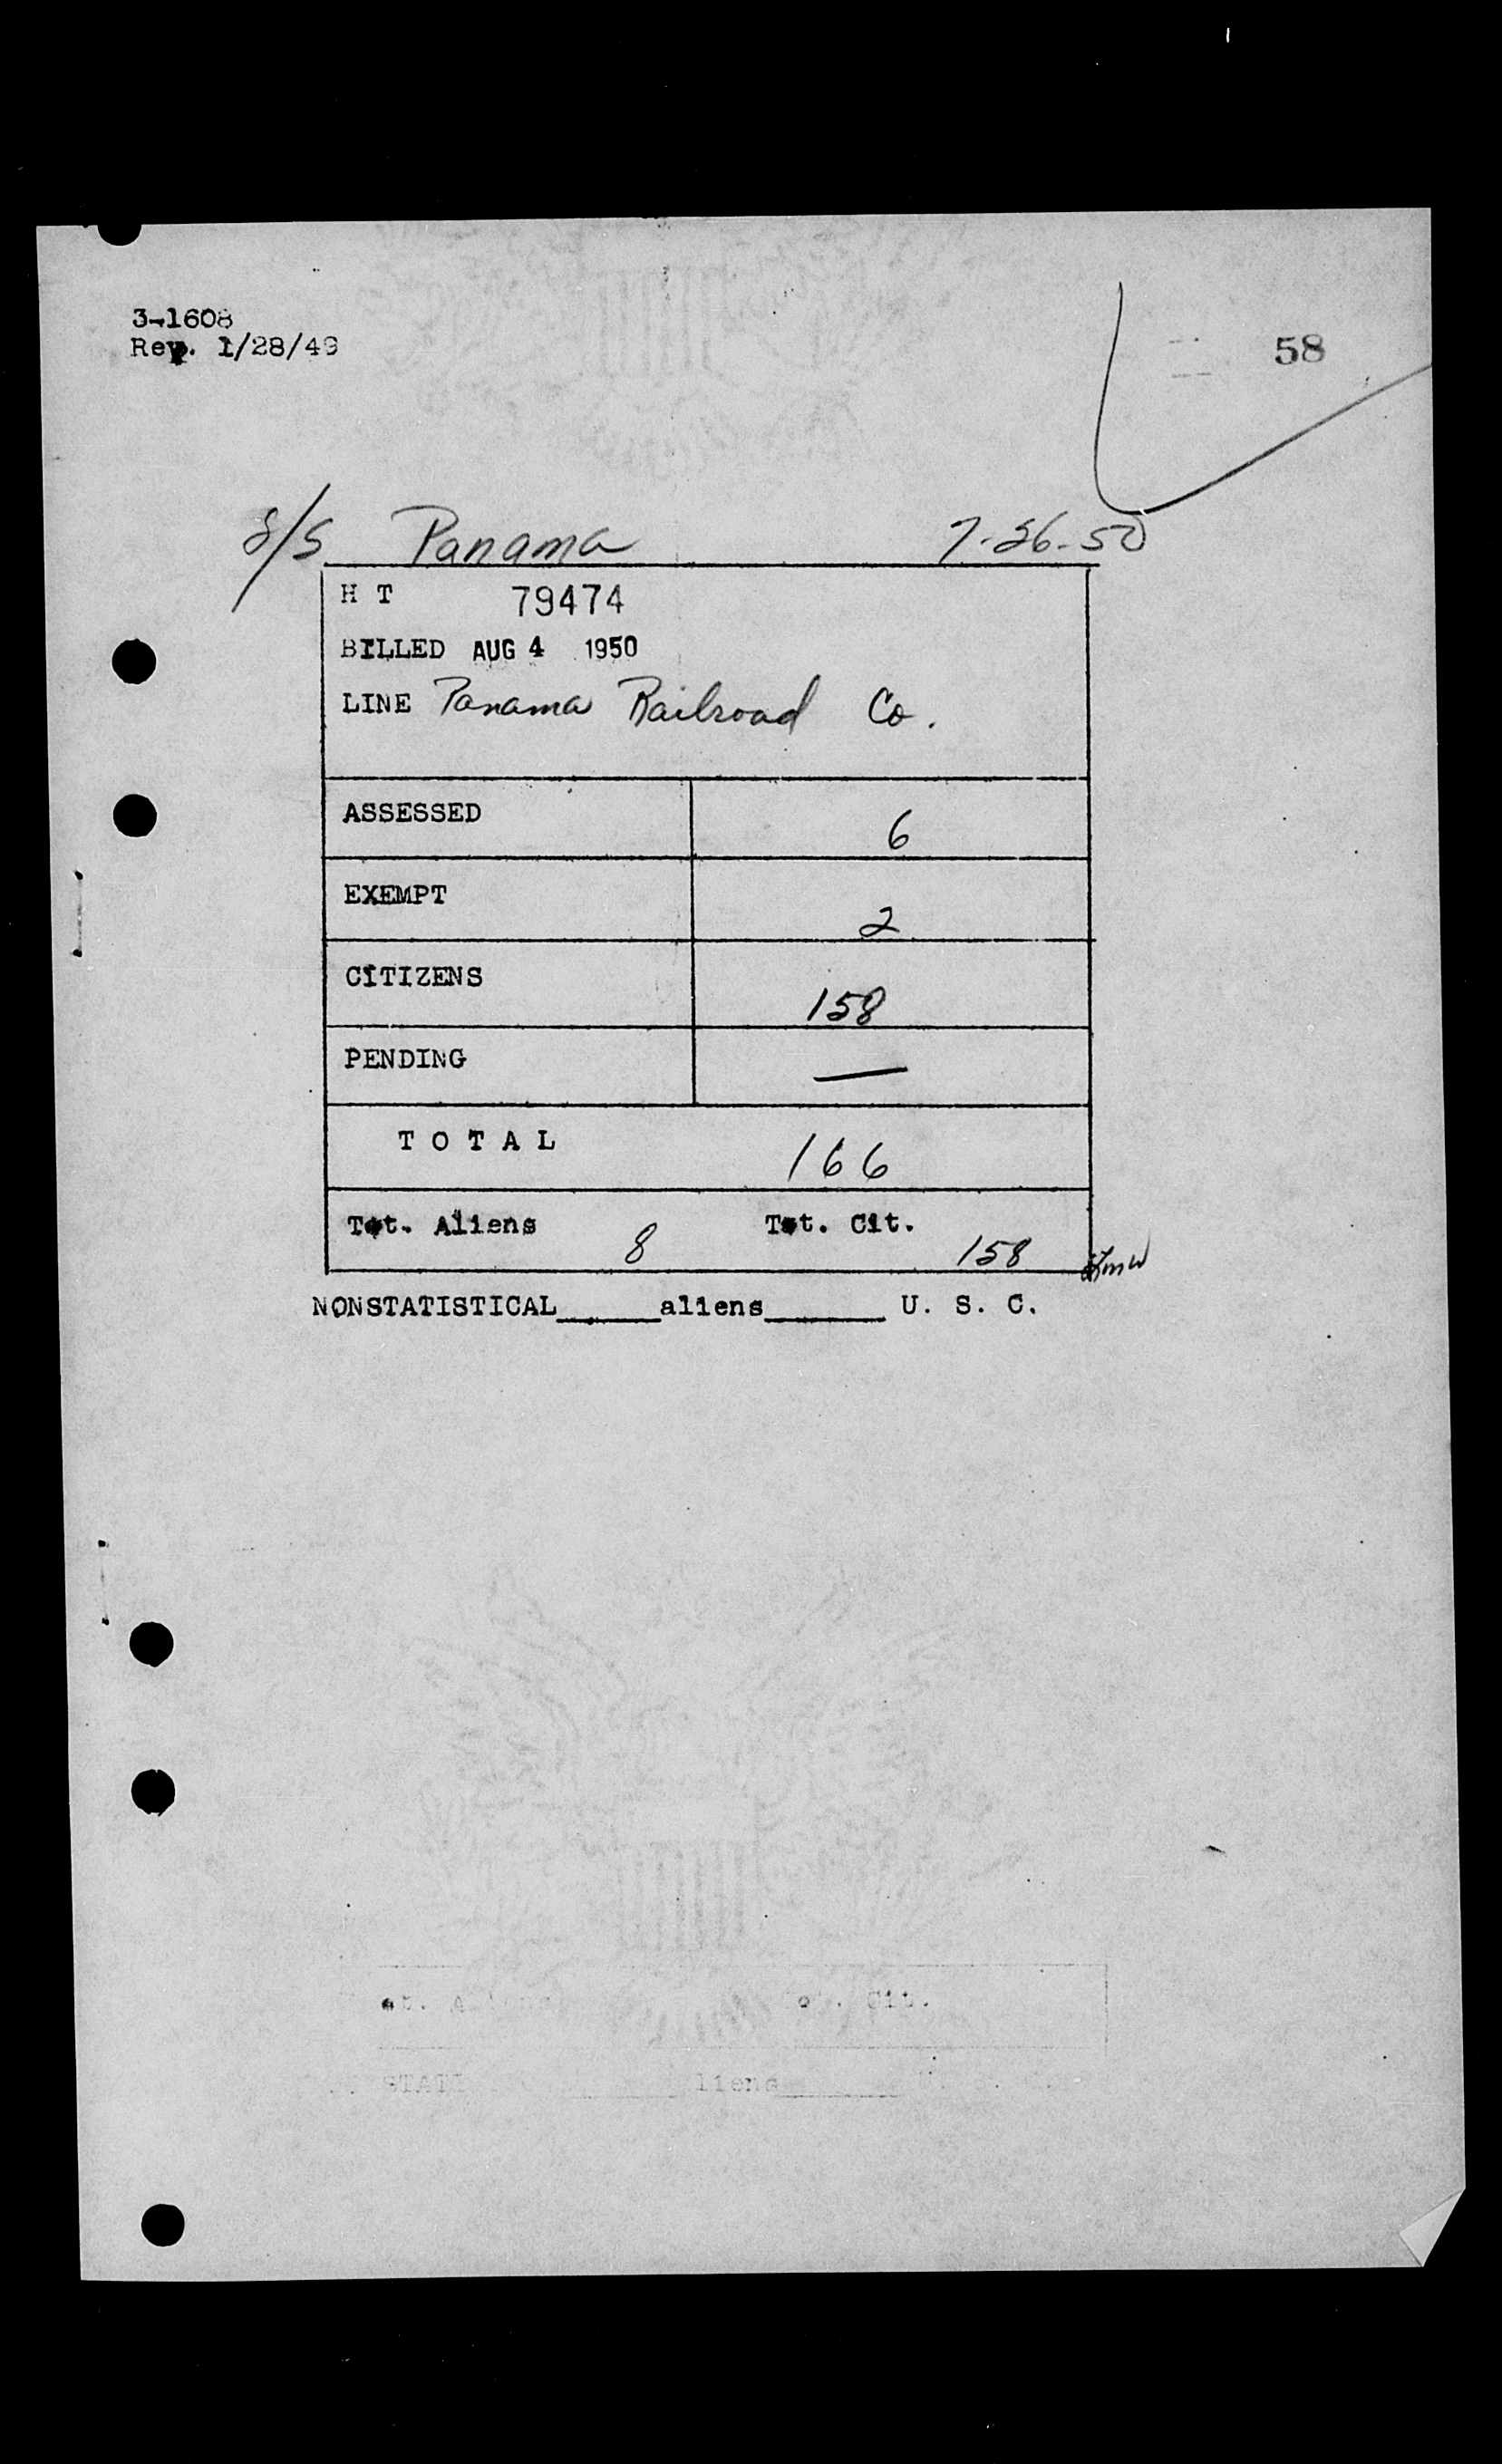 3-1608
Rev. 1/28/49
58
S/S Panama 7-26-50
H T 79474
BILLED AUG 4 1950
LINE Panama Railroad Co.
ASSESSED 6
EXEMPT 2
CITIZENS 158
PENDING —
T O T A L 166
Tot. Aliens 8 Tot. Cit. 158
NONSTATISTICAL______aliens_______ U. S. C.